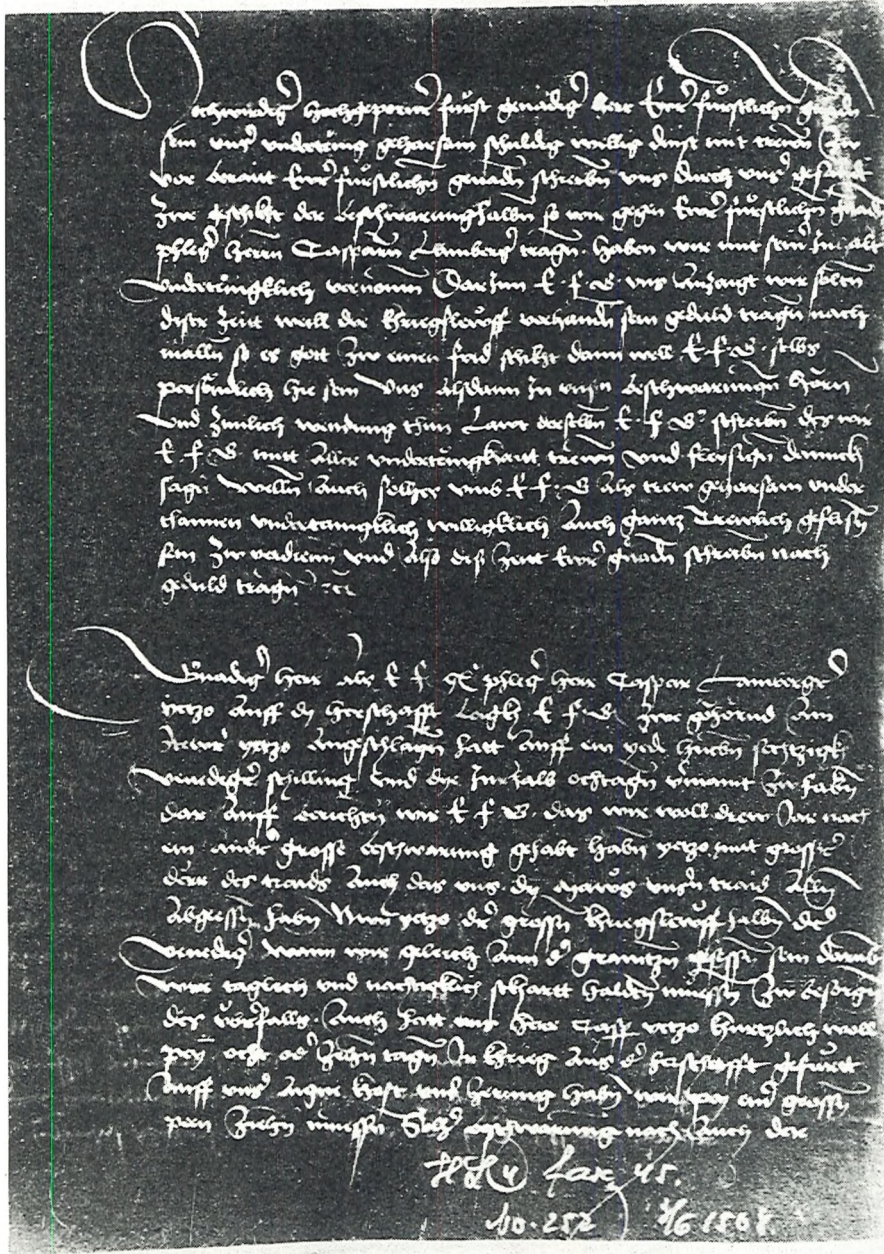 Hochwirdiger hochgeporner furst genadiger herr Ewr furstlichn gnadn
sein unser undertenig gehorsam schuldig willig dinst mit trewn
vor berait Ewr furstlichn genadn schreibn uns durch unser
zwe geschikht der beschwarunghalbn so wir gegen Ewr furstlichn gnad
phleger herrn Casparn Lamberger tragn haben wir mit sein Inhalt
undertenigklich vernomn Darinn E f G uns anzaigt wir soltn
diser zeit weill der khriegsleuff vorhandn sein geduld tragn nach
malln so es gott zw einen frid schikht dann well E f G selbs
personlich hie sein Uns alsdann In unsn beschwarungn horn
und zimlich wendung thun Laut derselbn E f G schreibn des wir
E f G mit aller undertenigkhait trewn und fleysign dannckh
sagn welln auch solhes umb E f G als trew gehorsam under
thannen undertanigklich williglich auch gantz trewlich geflissn
sein zw verdienn und also dise zeit Ewr gnadn schreibn nach
geduld tragn
Gnadiger herr als E f G phleger herr Caspar Lamberger
yetzo auff dy herschafft Lagkh E f G zwe gehornd ain
stewr yetzo angeschlagn hatt auff ein yede huebn sechtzigkh
venediger schilling und dye Inrhalb achtagn vermaint zw habn
dar auff berichtn wir E f G das wir woll drew Jar nach
ein ander grosse beschwarung gehabt habn yetzo mit grosser
derr des traids auch das uns dy unsn traid alln
abgessn habn Nun yetzo der grossn khriegsleuff halbn des
venediger wann wir gleich ann der granitzn gesessn sein darumb
wir taglich und nachtigklich schartt haldtn muessn zw besorgn
des uberfalls Auch hatt uns herr Casp yetzo khurtzlich woll
pey acht oder zehn tagn In khrieg aus der herschafft gefurtt
auff unser aigne khost und zerung habn wir pey ein grossn
pern ziehn muessn Solhe beschwarung nach auch der
HHLU fasc. 45.
No. 252 1/6 1508.